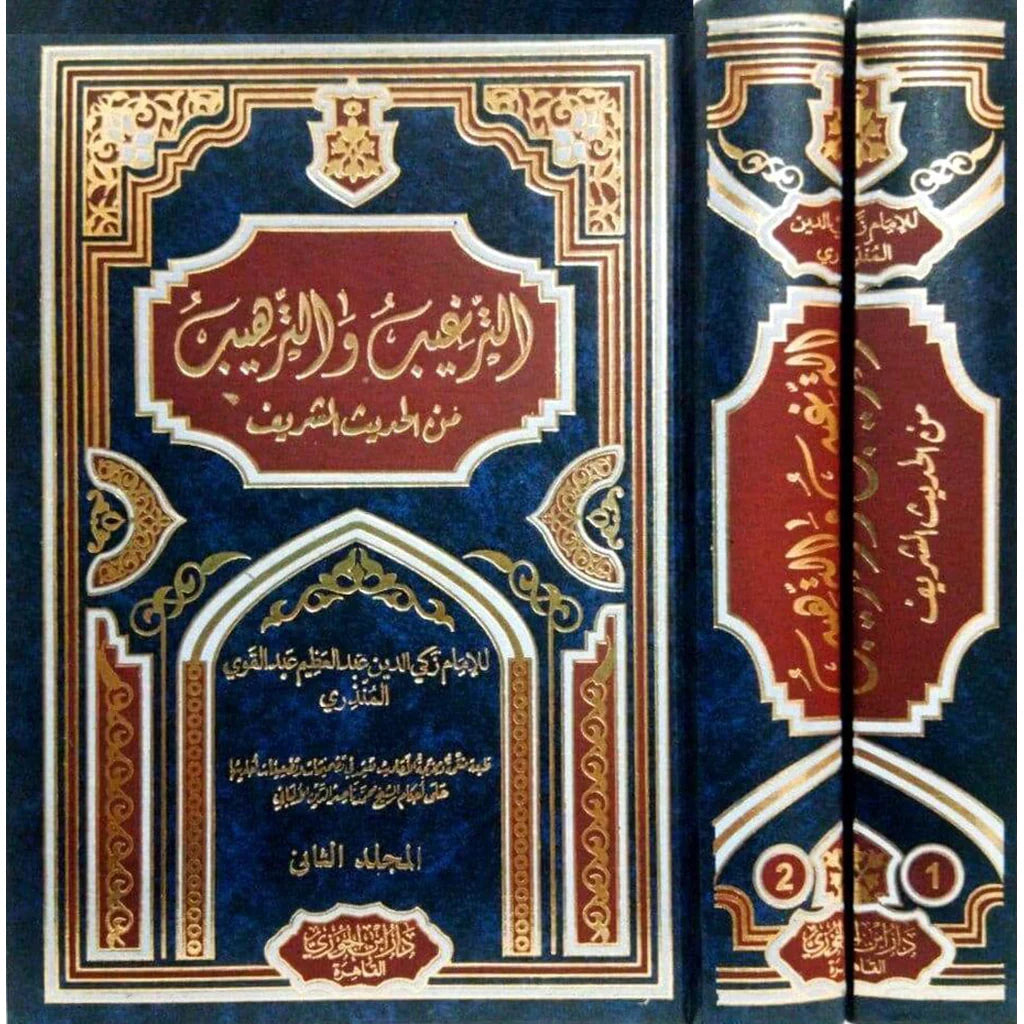 الترغيب والترهيب
من الحديث الشريف
للإمام زكي الدين عبد العظيم عبد القوي
المنذري
على أحكام الشيخ محمد ناصر الدين الألباني
المجلد الثاني
دار ابن الجوزي
القاهرة
للإمام زكي الدين
المنذري
الترغيب والترهيب
من الحديث الشريف
2
1
دار ابن الجوزي
القاهرة